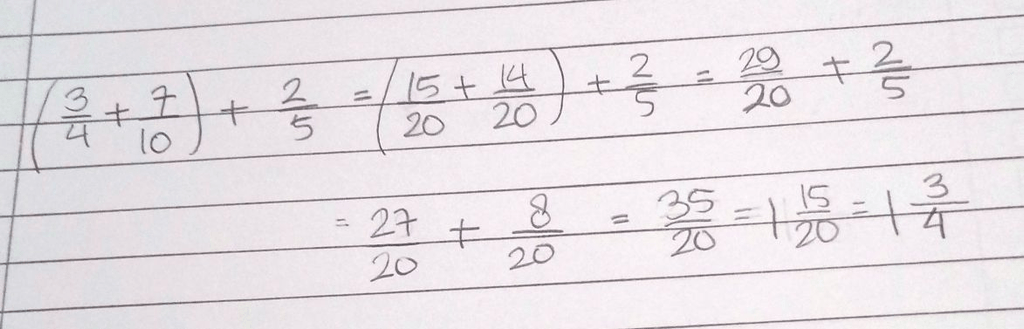 (3/4 + 7/10) + 2/5 = (15/20 + 14/20) + 2/5 = 29/20 + 2/5
= 27/20 + 8/20 = 35/20 = 1 15/20 = 1 3/4